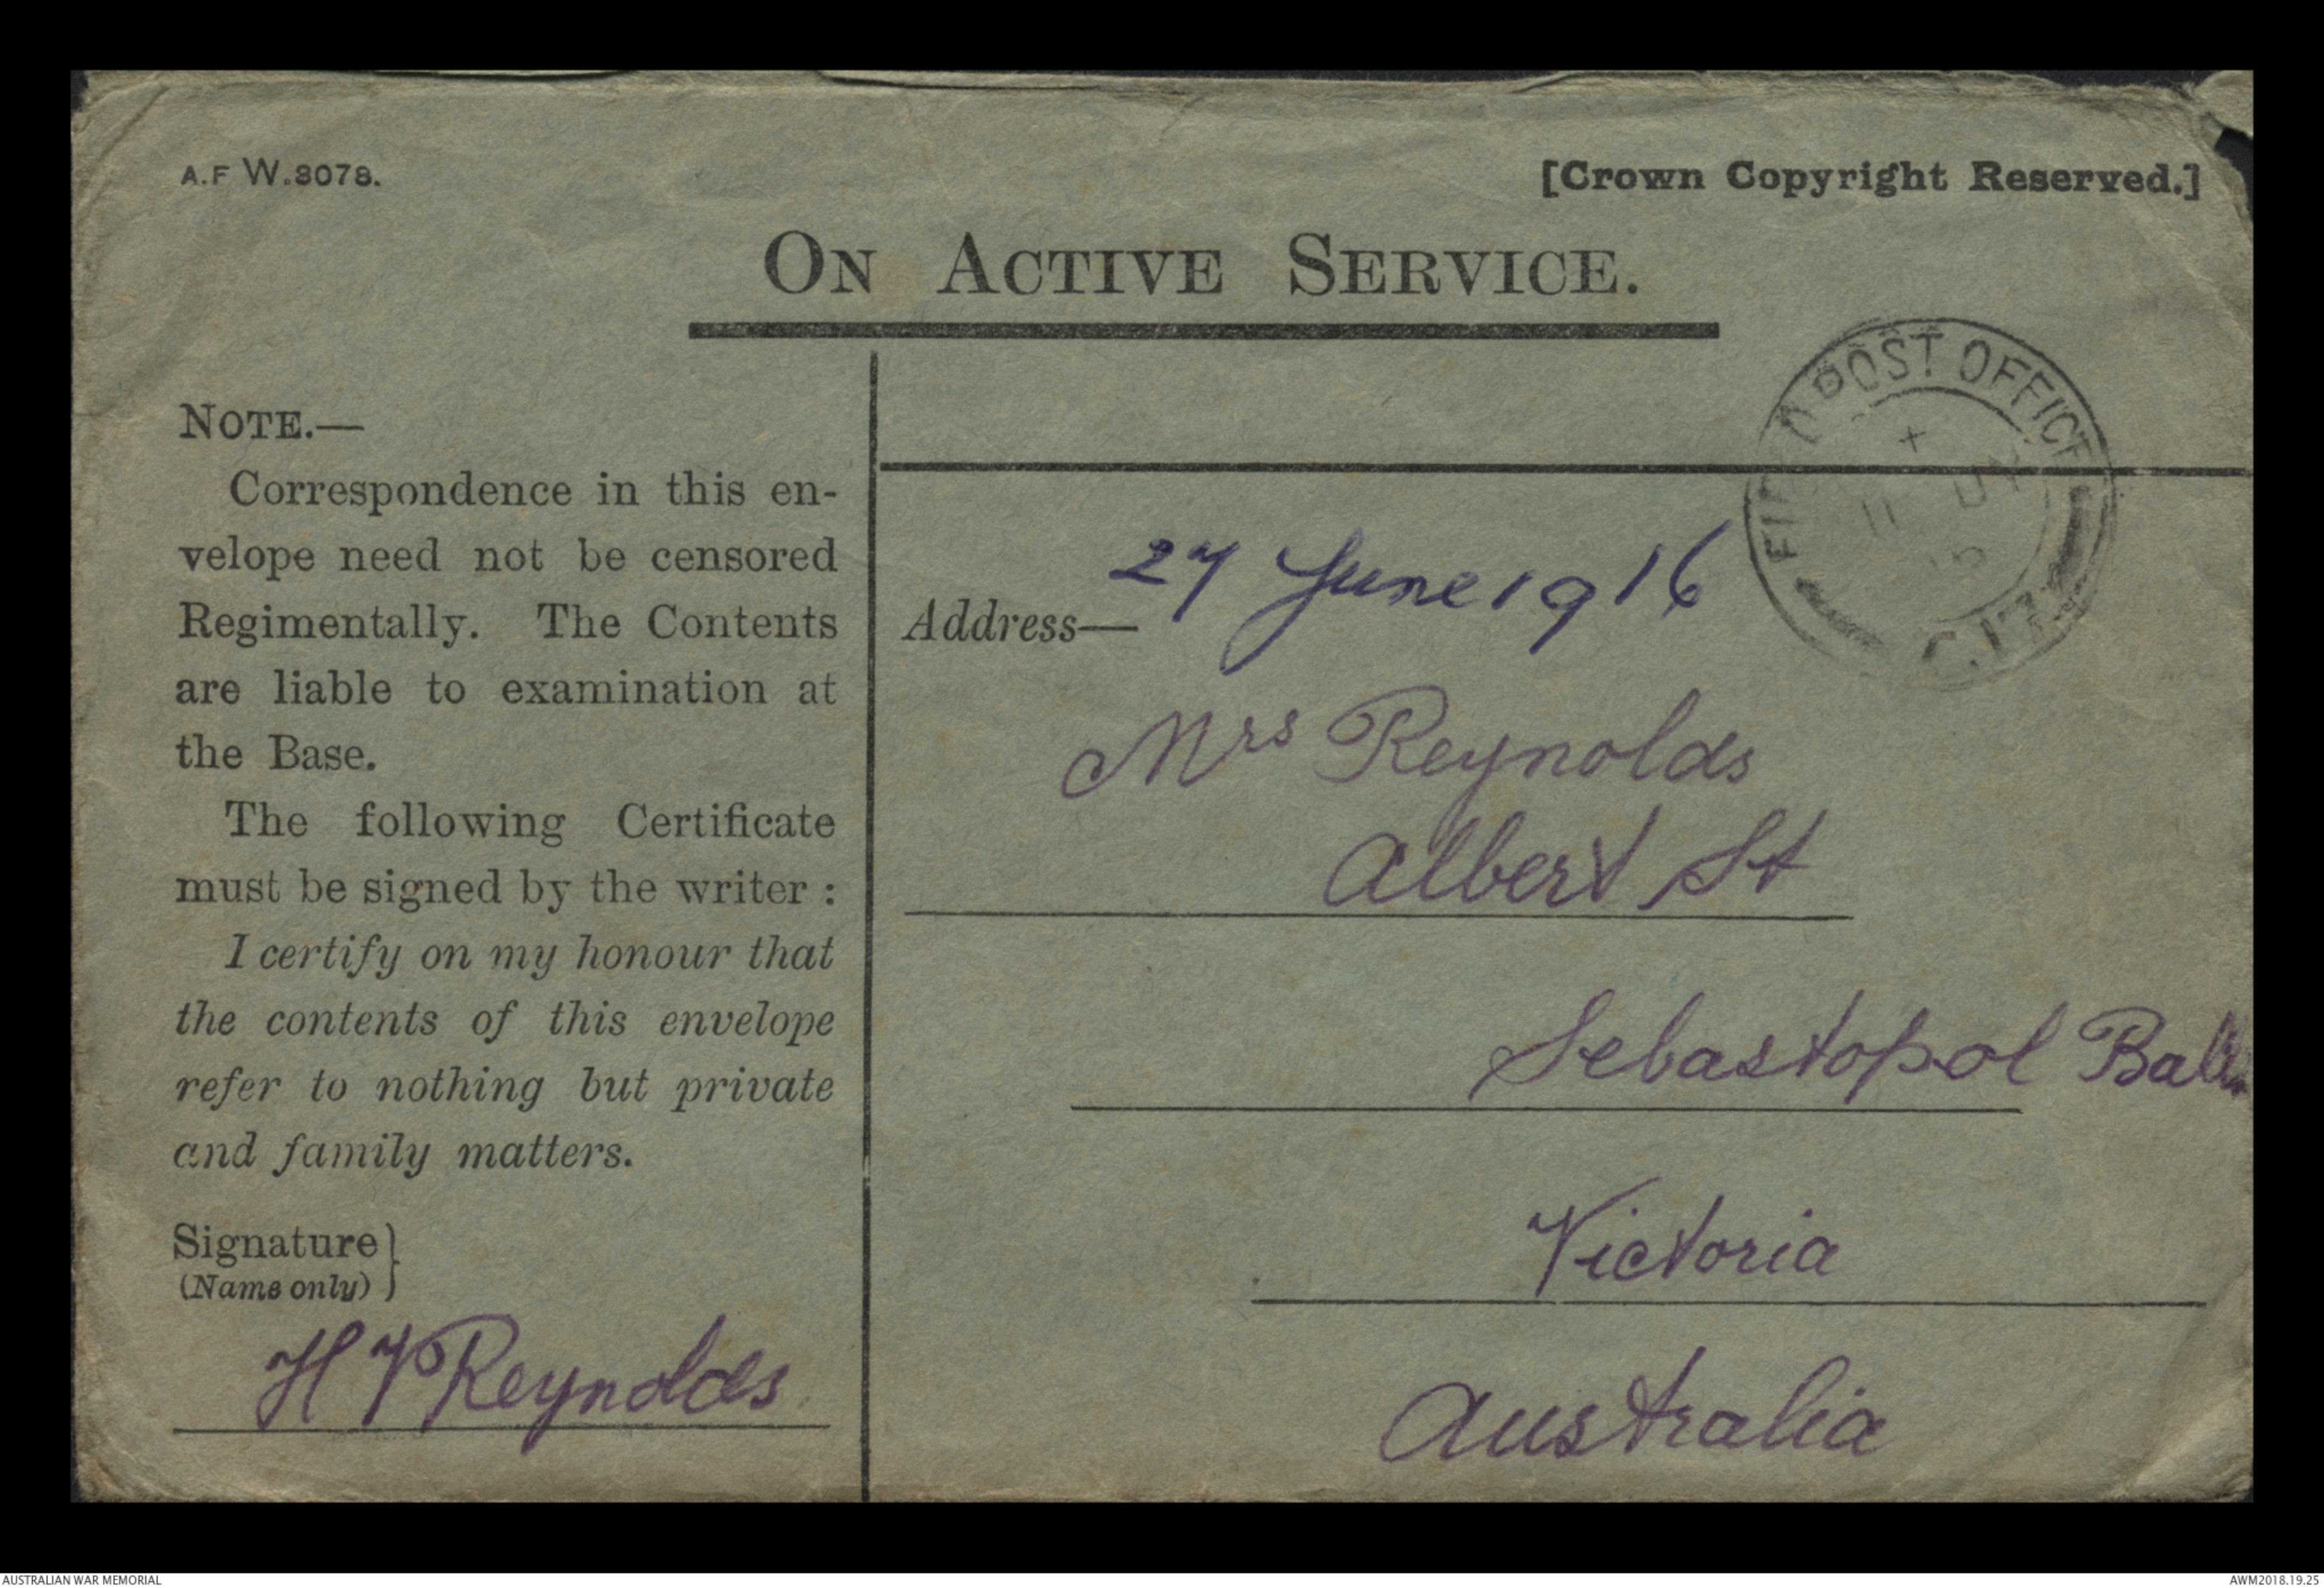 A.F W.3078.
[Crown Copyright Reserved.]
ON ACTIVE SERVICE.
NOTE.—
Correspondence in this en-
velope need not be censored
Regimentally. The Contents
are liable to examination at
the Base.
The following Certificate
must be signed by the writer :
I certify on my honour that
the contents of this envelope
refer to nothing but private
and family matters.
Signature
(Name only)
H V Reynolds
FIELD POST OFFICE
11
27 June 1916
Address—
Mrs Reynolds
Albert St
Sebastopol
Victoria
Australia
AUSTRALIAN WAR MEMORIAL
AWM2018.19.25